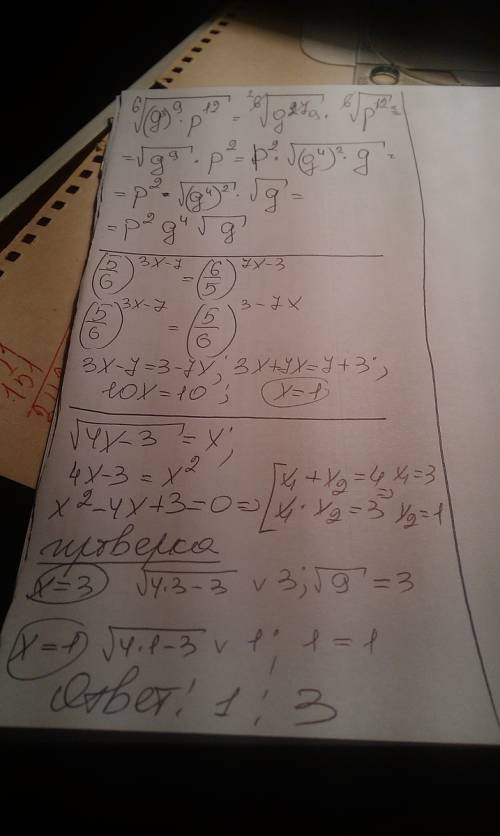 ⁶√((g³)⁹ · p¹²) = ⁶√(g²⁷) · ⁶√(p¹²) =
= √(g⁹) · p² = p² · √((g⁴)² · g) =
= p² · √((g⁴)²) · √g =
= p² g⁴ √g
(5/6)^(3x-7) = (6/5)^(7x-3)
(5/6)^(3x-7) = (5/6)^(3-7x)
3x-7=3-7x; 3x+7x=7+3;
10x=10; x=1
√(4x-3) = x;
4x-3 = x²
x²-4x+3=0 => [x₁+x₂=4 x₁=3
x₁·x₂=3 => x₂=1
проверка
x=3 √(4·3-3) ∨ 3; √9 = 3
x=1 √(4·1-3) ∨ 1; 1=1
Ответ: 1; 3
151